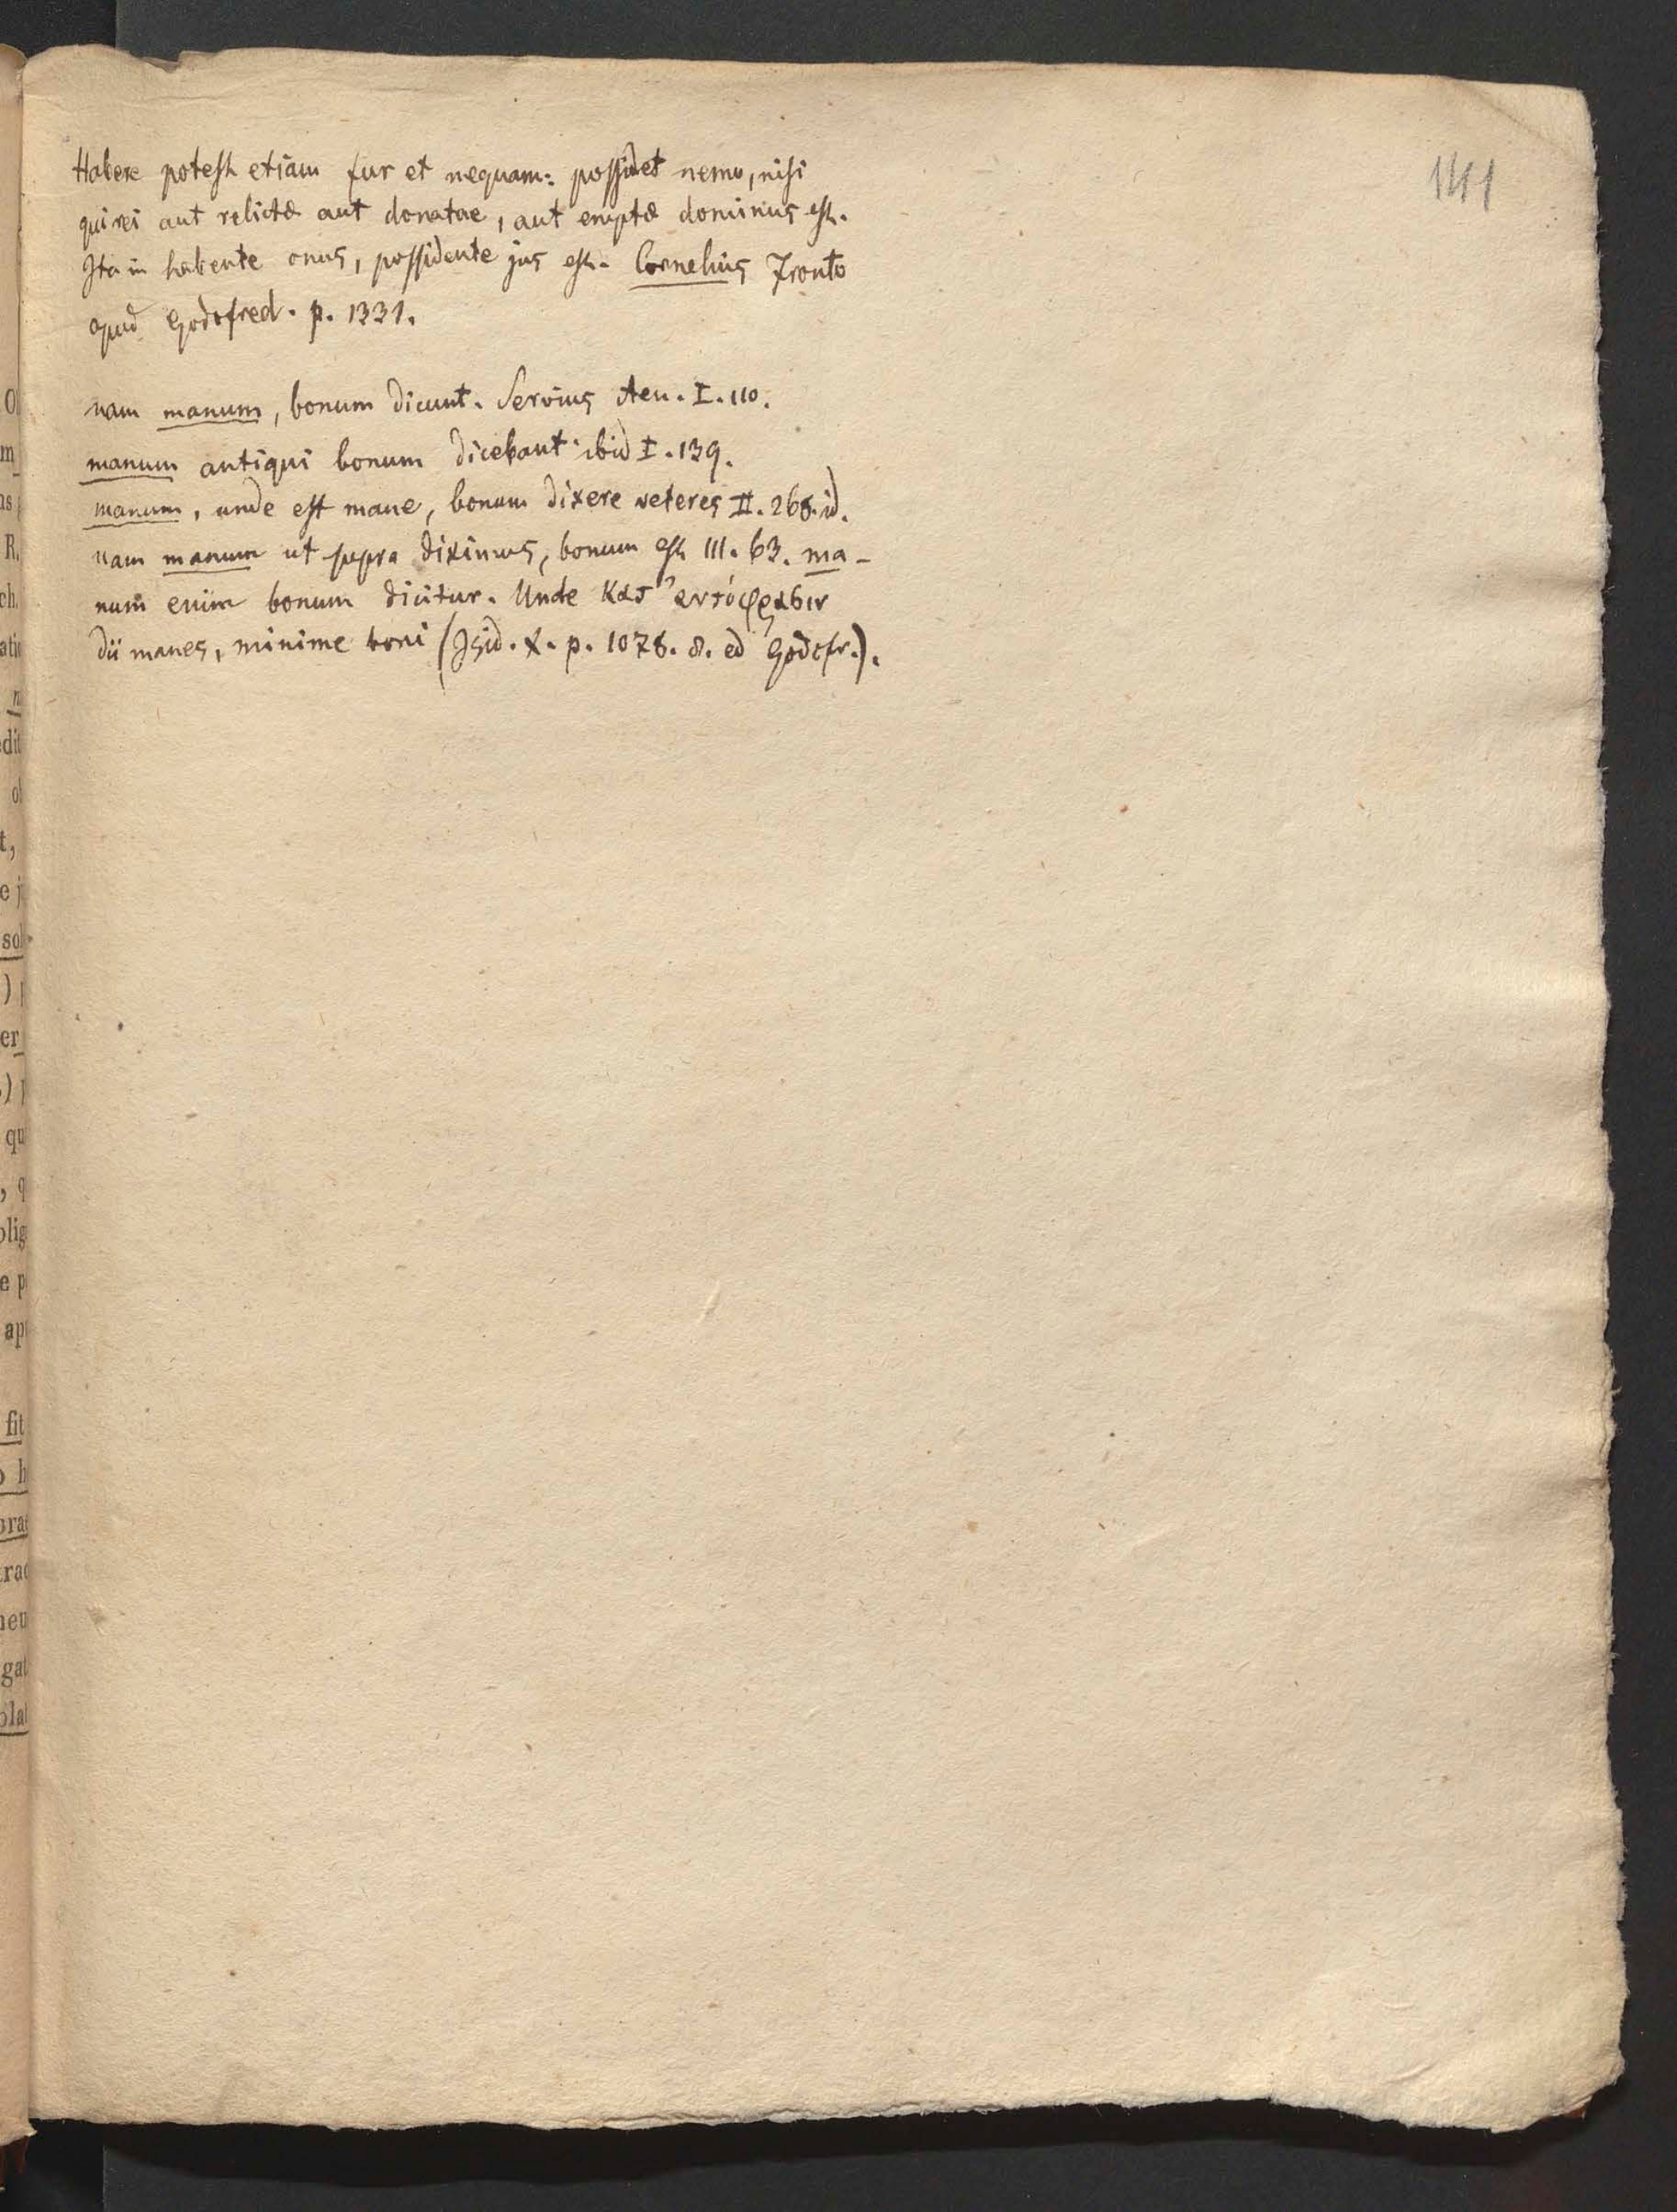 141
Habere potest etiam fur et nequam: possidet nemo, nisi
qui rei aut relictæ aut donatae, aut emptæ dominus est.
Ita in habente onus, possidente jus est. Cornelius Fronto
apud Godofred. p. 1331.
nam manum, bonum dicunt. Servius Aen. I. 110.
manum antiqui bonum dicebant ibid I. 139.
manum, unde est mane, bonum dixere veteres II. 268. id.
nam manum ut supra diximus, bonum est III. 63. ma-
num enim bonum dicitur. Unde κατ' αντίφρασιν
dii manes, minime boni (Isid. X. p. 1078. 8. ed Godofr.).
O
m
as
R.
ch.
atio
n
edit
ol
t,
e j
sol
)
er
)
qu
, q
olig
e p
ap
fit
o h
orae
rac
neu
gat
olat